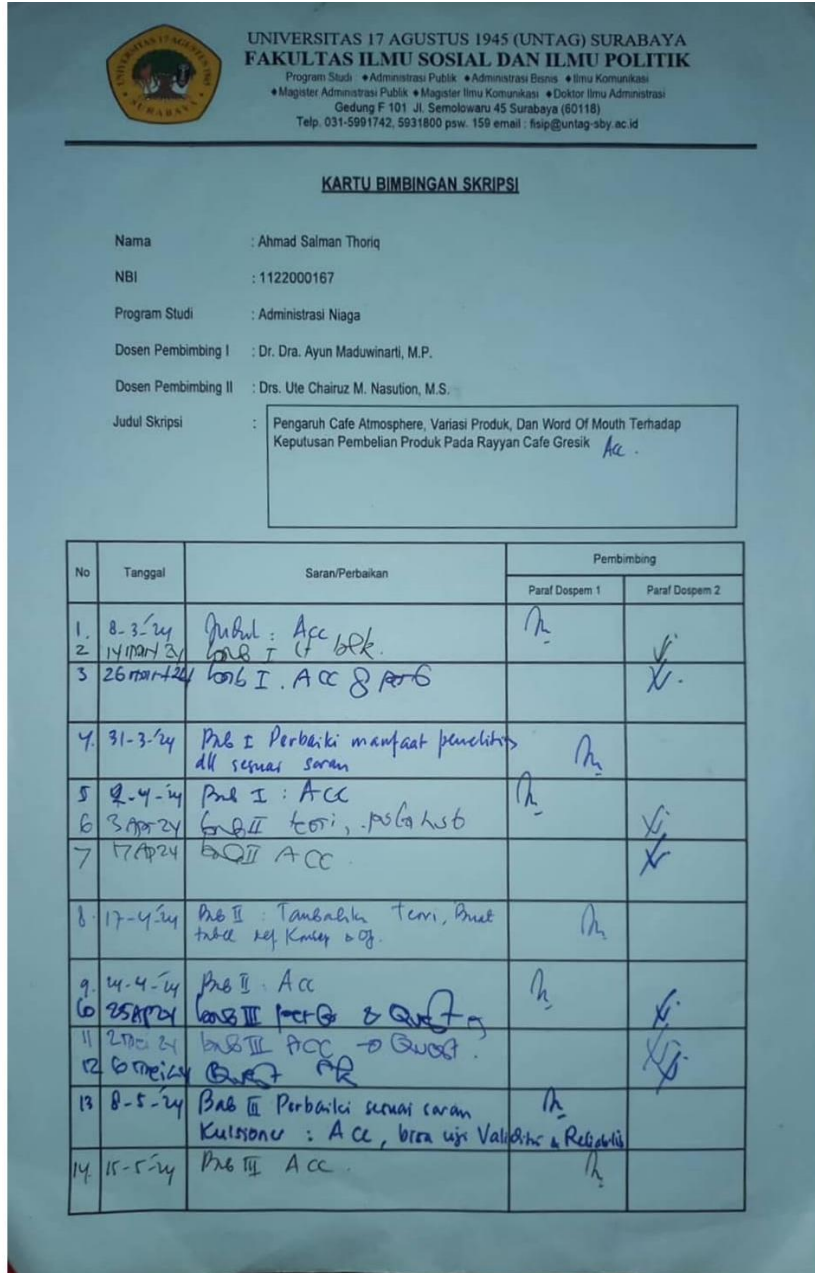 UNIVERSITAS 17 AGUSTUS 1945 (UNTAG) SURABAYA
FAKULTAS ILMU SOSIAL DAN ILMU POLITIK
Program Studi : ♦Administrasi Publik ♦Administrasi Bisnis ♦Ilmu Komunikasi
♦Magister Administrasi Publik ♦Magister Ilmu Komunikasi ♦Doktor Ilmu Administrasi
Gedung F 101 Jl. Semolowaru 45 Surabaya (60118)
Telp. 031-5991742, 5931800 psw. 159 email : fisip@untag-sby.ac.id
UNIVERSITAS 17 AGUSTUS 1945
SURABAYA
KARTU BIMBINGAN SKRIPSI
Nama : Ahmad Salman Thoriq
NBI : 1122000167
Program Studi : Administrasi Niaga
Dosen Pembimbing I : Dr. Dra. Ayun Maduwinarti, M.P.
Dosen Pembimbing II : Drs. Ute Chairuz M. Nasution, M.S.
Judul Skripsi : Pengaruh Cafe Atmosphere, Variasi Produk, Dan Word Of Mouth Terhadap
Keputusan Pembelian Produk Pada Rayyan Cafe Gresik Acc.
No Tanggal Saran/Perbaikan Pembimbing
Paraf Dospem 1 Paraf Dospem 2
1. 8-3-'24 Judul : Acc
2 14 Mart 24 bab I
3 26 Mart 24 bab I. ACC
4. 31-3-'24 Bab I Perbaiki manfaat penelitian
dll sesuai saran
5 2-4-'24 Bab I : ACC
6 3 Apr 24 bab II teori,
7 17 Ap 24 bab II ACC
8. 17-4-'24 Bab II : Tambahkan Teori, Buat
tabel def. Konsep & Of.
9. 24-4-'24 Bab II : Acc
10 25 Apr 24 bab III & Quest
11 2 Mei 24 bab III ACC → Quest.
12 6 Mei 24 Quest
13 8-5-'24 Bab III Perbaiki sesuai saran
Kuisioner : Acc, bisa uji Validitas & Reliabilitas
14. 15-5-'24 Bab III Acc.